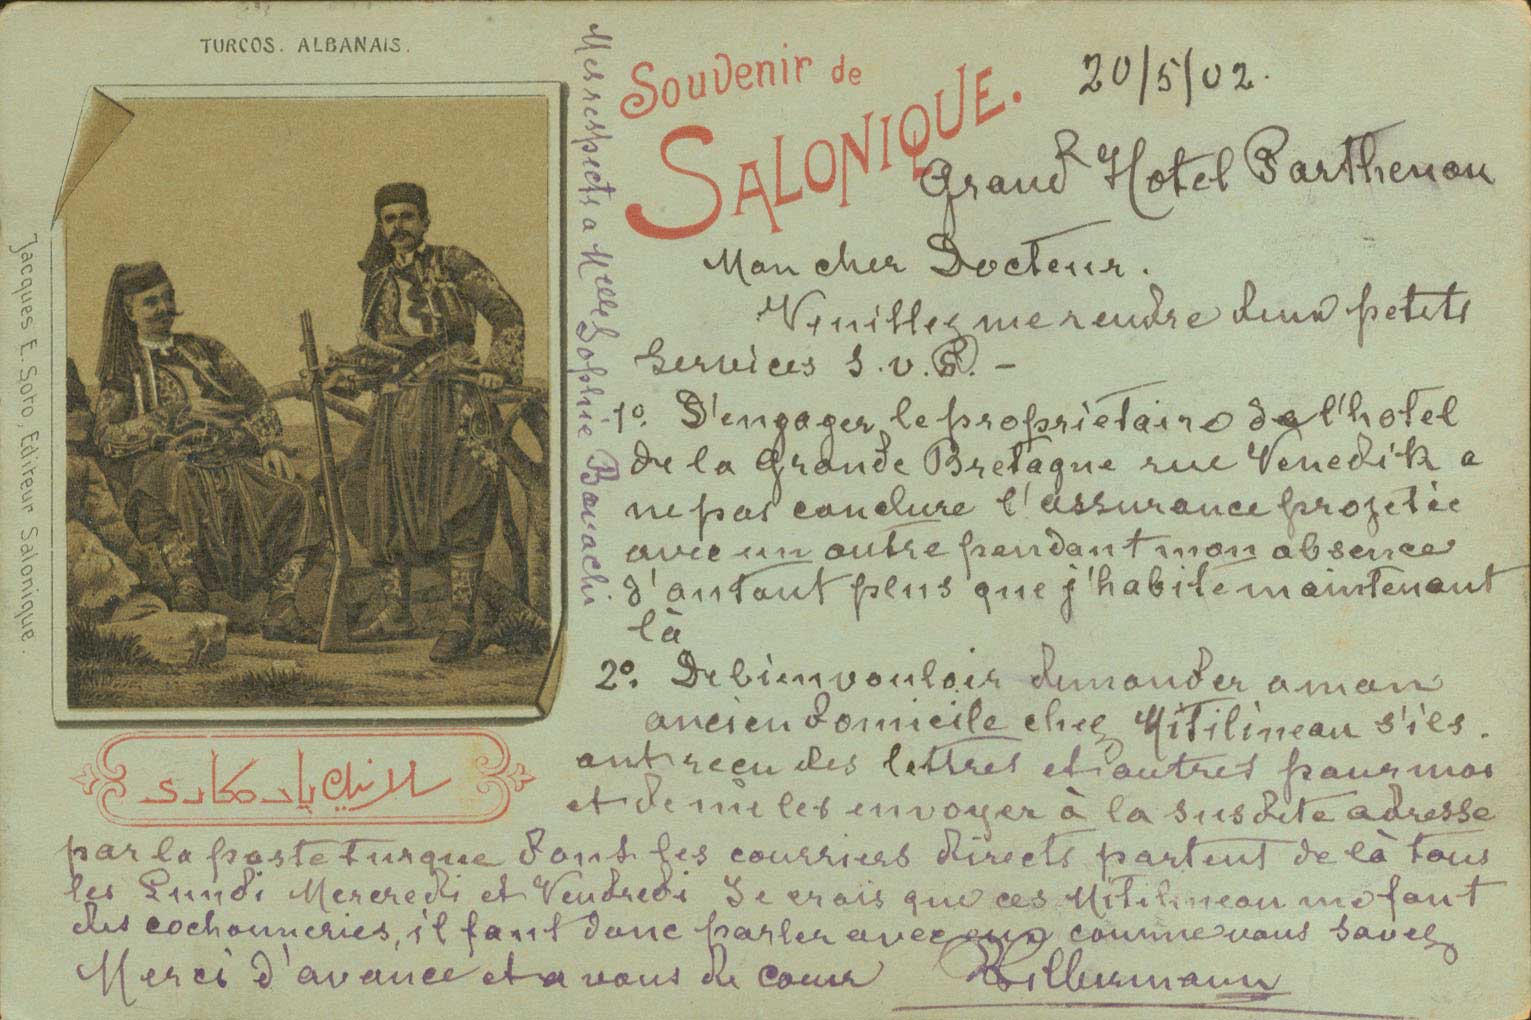 TURCOS. ALBANAIS.
Souvenir de
SALONIQUE.
20/5/02.
Grand Hotel Parthenon
Mon cher Docteur.
Veuillez me rendre deux petits
services s.v.P. –
1º. D'engager le propriétaire de l'hotel
de la Grande Bretagne rue Venedik a
ne pas conclure l'assurance projetée
avec un autre pendant mon absence
d'autant plus que j'habite maintenant
là
2º. De bien vouloir demander a mon
ancien domicile chez Mitilineau s'ils.
ont reçu des lettres et autres pour moi
et de me les envoyer à la susdite adresse
par la poste turque dont les courriers directs partent de là tous
les Lundi Mercredi et Vendredi Je crois que ces Mitilineau me font
des cochonneries, il faut donc parler avec eux comme vous savez
Merci d'avance et a vous de coeur
Mes respects a Mlle Sophie
Jacques E. Soto, Editeur Salonique.
سلانیك یادكاری